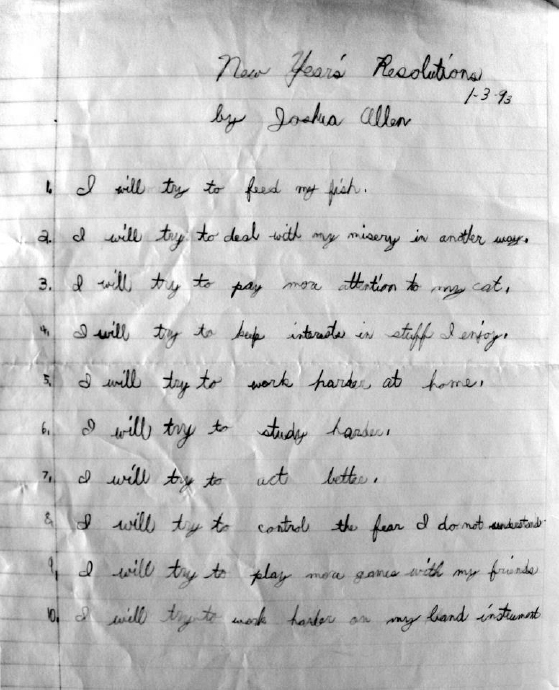 New Years' Resolutions
1-3-93
by Joshua Allen
1. I will try to feed my fish.
2. I will try to deal with my misery in another way.
3. I will try to pay more attention to my cat.
4. I will try to keep interests in stuff I enjoy.
5. I will try to work harder at home.
6. I will try to study harder.
7. I will try to act better.
8. I will try to control the fear I do not understand.
9. I will try to play more games with my friends
10. I will try to work harder on my band instrument